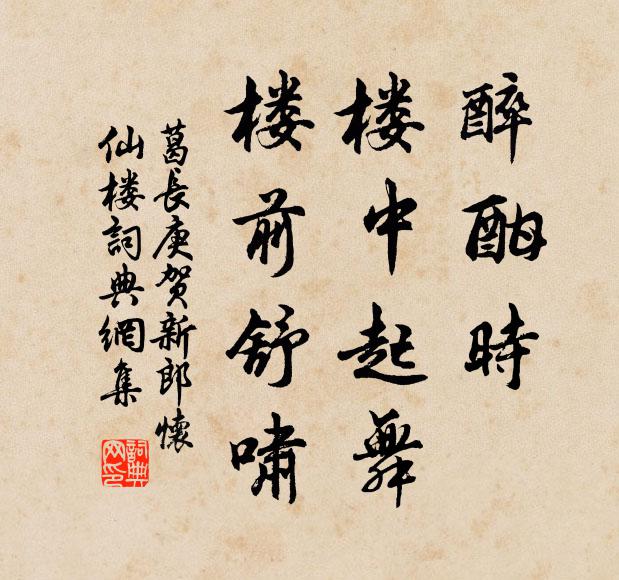 醉酣時
楼中起舞
楼前舒嘯
葛長庚贺新郎懷
仙楼詞典網集
詞典
网印